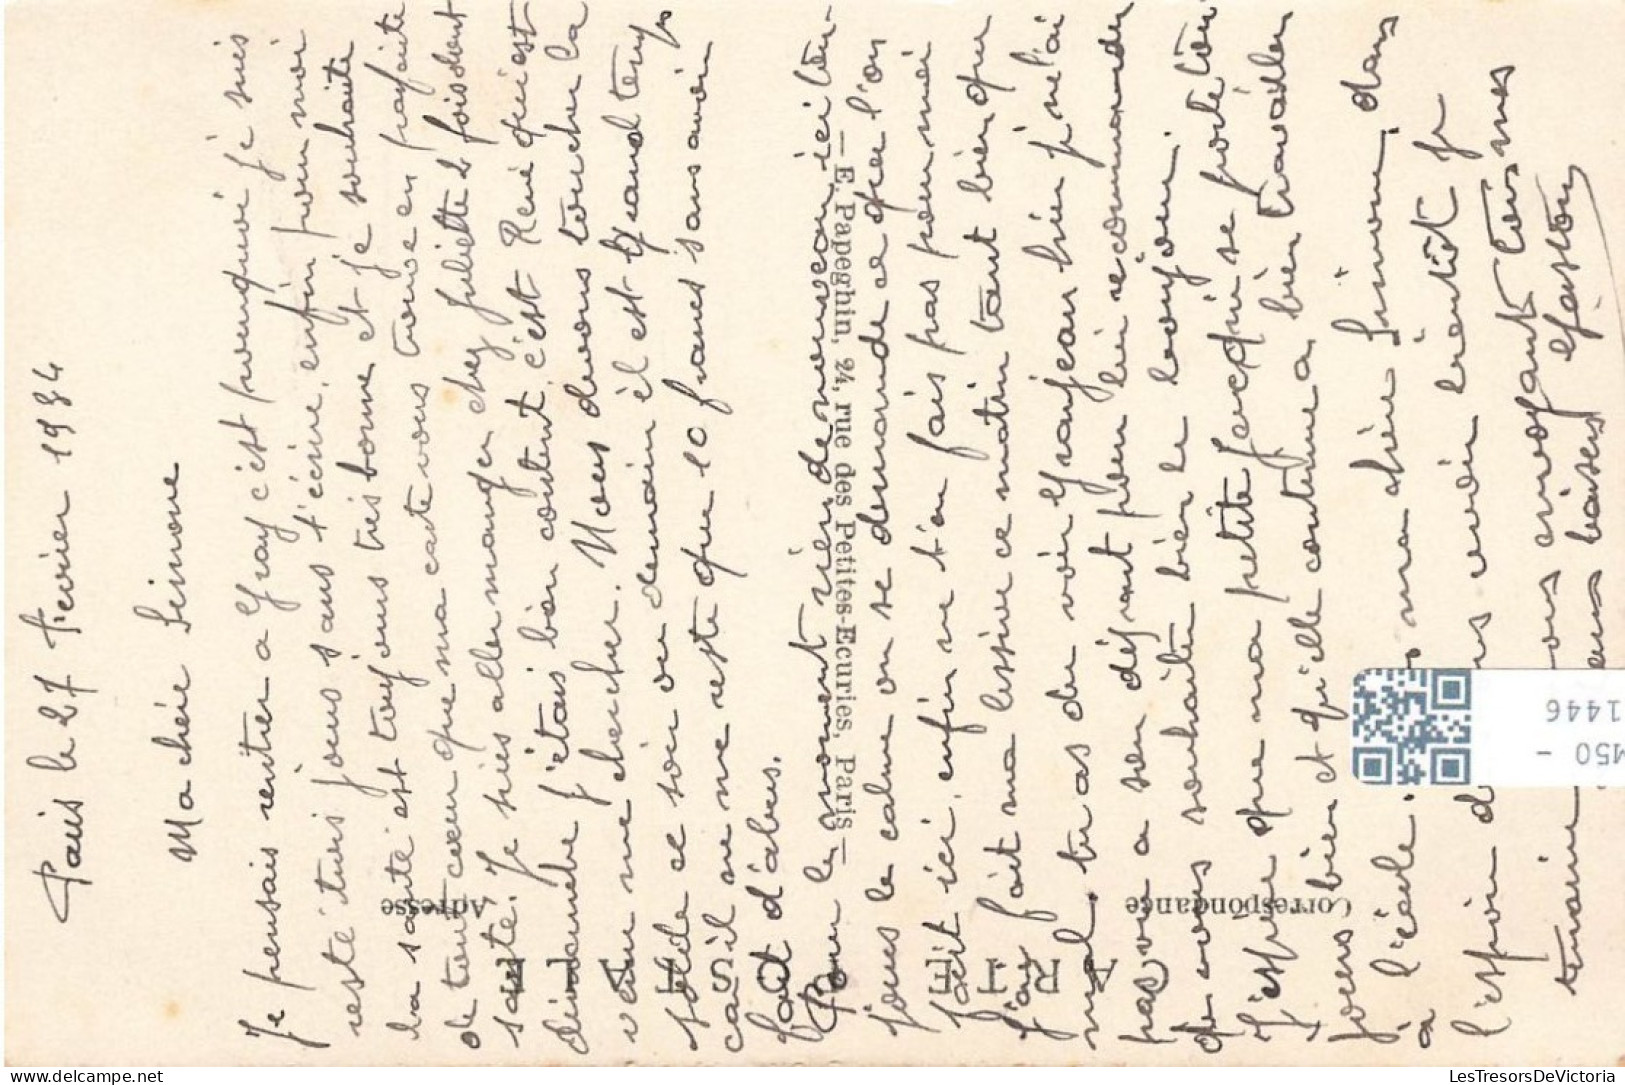 Paris le 27 Fevrier 1934
Ma chère Simone
Je pensais rentrer a Gray c'est pourquoi je suis
resté  jours sans t'écrire, enfin pour moi
la santé est toujours très bonne et je souhaite
de tout cœur que ma carte vous trouve en parfaite
santé. Je suis aller manger chez Juliette 2 fois dont
dimanche j'étais bien content, c'est René qui est
venu me chercher. Nous devons toucher la
solde ce soir ou demain il est grand temps
car il ne me reste que 10 francs sans avoir
fait d'abus.
Pour le moment rien de nouveau ici tou-
jours le calme on se demande ce que l'on
fait ici, enfin ne t'en fais pas pour moi
j'ai fait ma lessive ce matin tant bien que
mal. tu as du voir Granjean hier je ne l'ai
pas vu a son départ pour lui recommander
de vous souhaiter bien le bonjour.
J'espère que ma petite  se porte tou-
jours bien et qu'elle continue a bien travailler
à l'école.  ma chère Simone, dans
l'espoir de  revoir bientôt je
termine  vous envoyant tous mes
 baisers Gaston
CARTE POSTALE
Correspondance
Adresse
— E. Papeghin, 24, rue des Petites-Ecuries, Paris —
M50 -
1446
LesTresorsDeVictoria